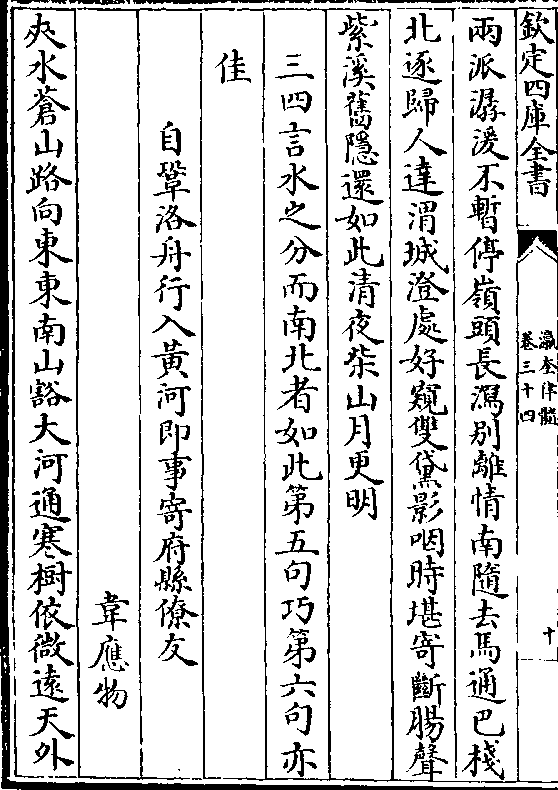 欽定四庫全書
瀛奎律髓
卷三十四
十
兩派潺湲不暫停嶺頭長瀉别離情南隨去馬通巴棧
北逐歸人達渭城澄處好窺雙黛影咽時堪寄斷腸聲
紫溪舊隱還如此清夜柴山月更明
三四言水之分而南北者如此第五句巧第六句亦
佳
自鞏洛舟行入黄河即事寄府縣僚友
韋應物
夾水蒼山路向東東南山豁大河通寒樹依微遠天外